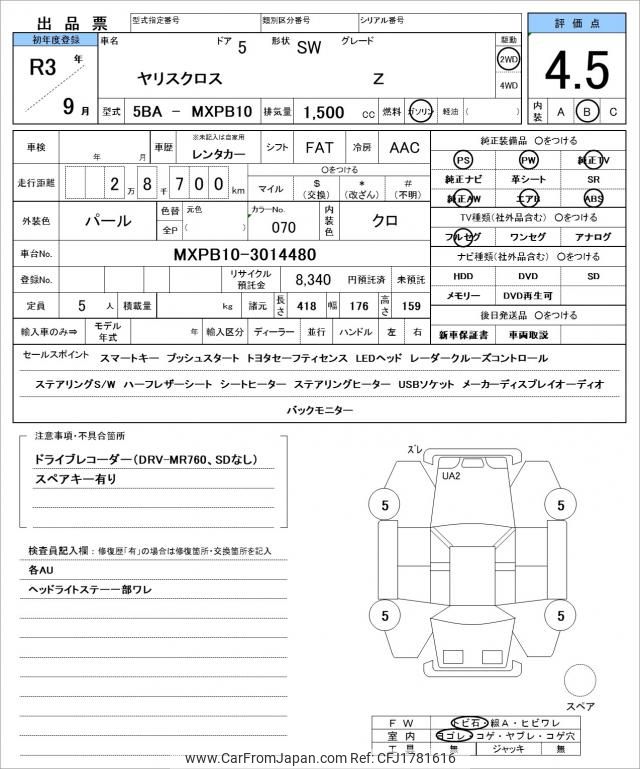 出品票 型式指定番号 類別区分番号 シリアル番号 評価点
初年度登録 車名 ドア 5 形状 SW グレード 駆動
R3 年 9 月 ヤリスクロス Z 2WD 4WD 4.5
型式 5BA － MXPB10 排気量 1,500 cc 燃料 ガソリン 軽油 ( ) 内装 A B C
車検 年 月 車歴 ※未記入は自家用 レンタカー シフト FAT 冷房 AAC 純正装備品 〇をつける
走行距離 2 万 8 千 7 0 0 km 〇をつける マイル $ (交換) * (改ざん) # (不明)
PS PW 純正TV
純正ナビ 革シート SR
純正AW エアB ABS
外装色 パール 色替 元色 全P ( ) カラーNo. 070 内装色 クロ
TV種類(社外品含む) 〇をつける
フルセグ ワンセグ アナログ
車台No. MXPB10-3014480 ナビ種類(社外品含む) 〇をつける
登録No. リサイクル預託金 8,340 円預託済 未預託 HDD DVD SD
定員 5 人 積載量 kg 諸元 長さ 418 幅 176 高さ 159 メモリー DVD再生可
後日発送品 〇をつける
輸入車のみ⇒ モデル年式 年 輸入区分 ディーラー 並行 ハンドル 左 右 新車保証書 車両取説
セールスポイント スマートキー プッシュスタート トヨタセーフティセンス LEDヘッド レーダークルーズコントロール
ステアリングS/W ハーフレザーシート シートヒーター ステアリングヒーター USBソケット メーカーディスプレイオーディオ
バックモニター
注意事項・不具合箇所
ドライブレコーダー(DRV-MR760、SDなし)
スペアキー有り
検査員記入欄：修復歴「有」の場合は修復箇所・交換箇所を記入
各AU
ヘッドライトステー一部ワレ
ズレ
UA2
5 5
5 5
スペア
FW トビ石・線A・ヒビワレ
室内 ヨゴレ・コゲ・ヤブレ・コゲ穴
工具 無 ジャッキ 無
www.CarFromJapan.com Ref: CFJ1781616